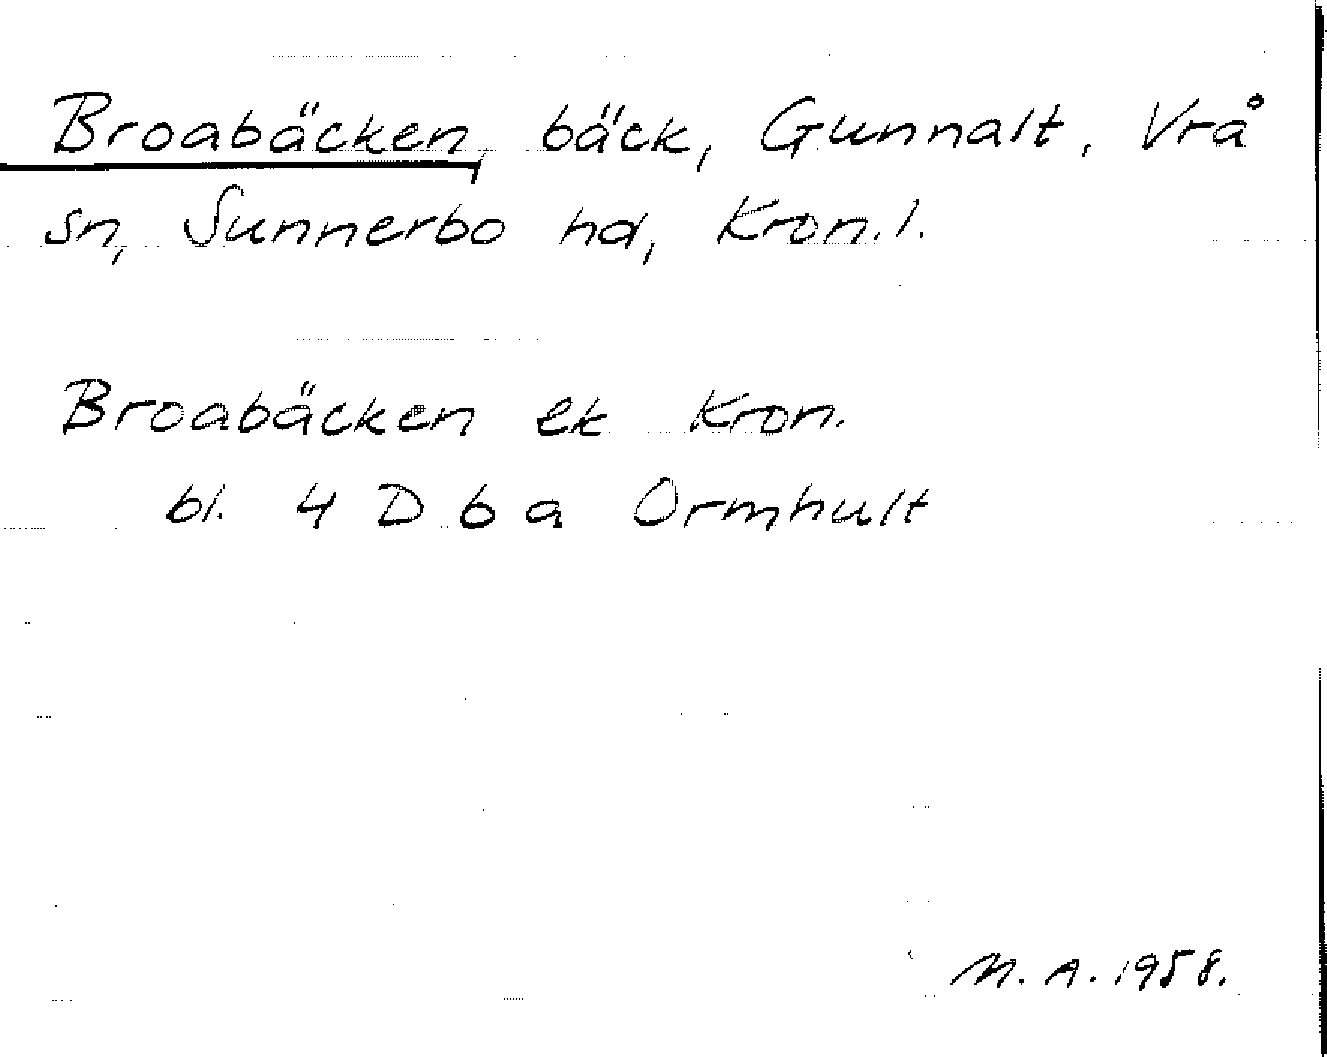 Broabäcken, bäck, Gunnalt, Vrå
sn, Sunnerbo hd, Kron.l.
Broabäcken ek Kron.
bl. 4 D 6 a Ormhult
M. A. 1958.